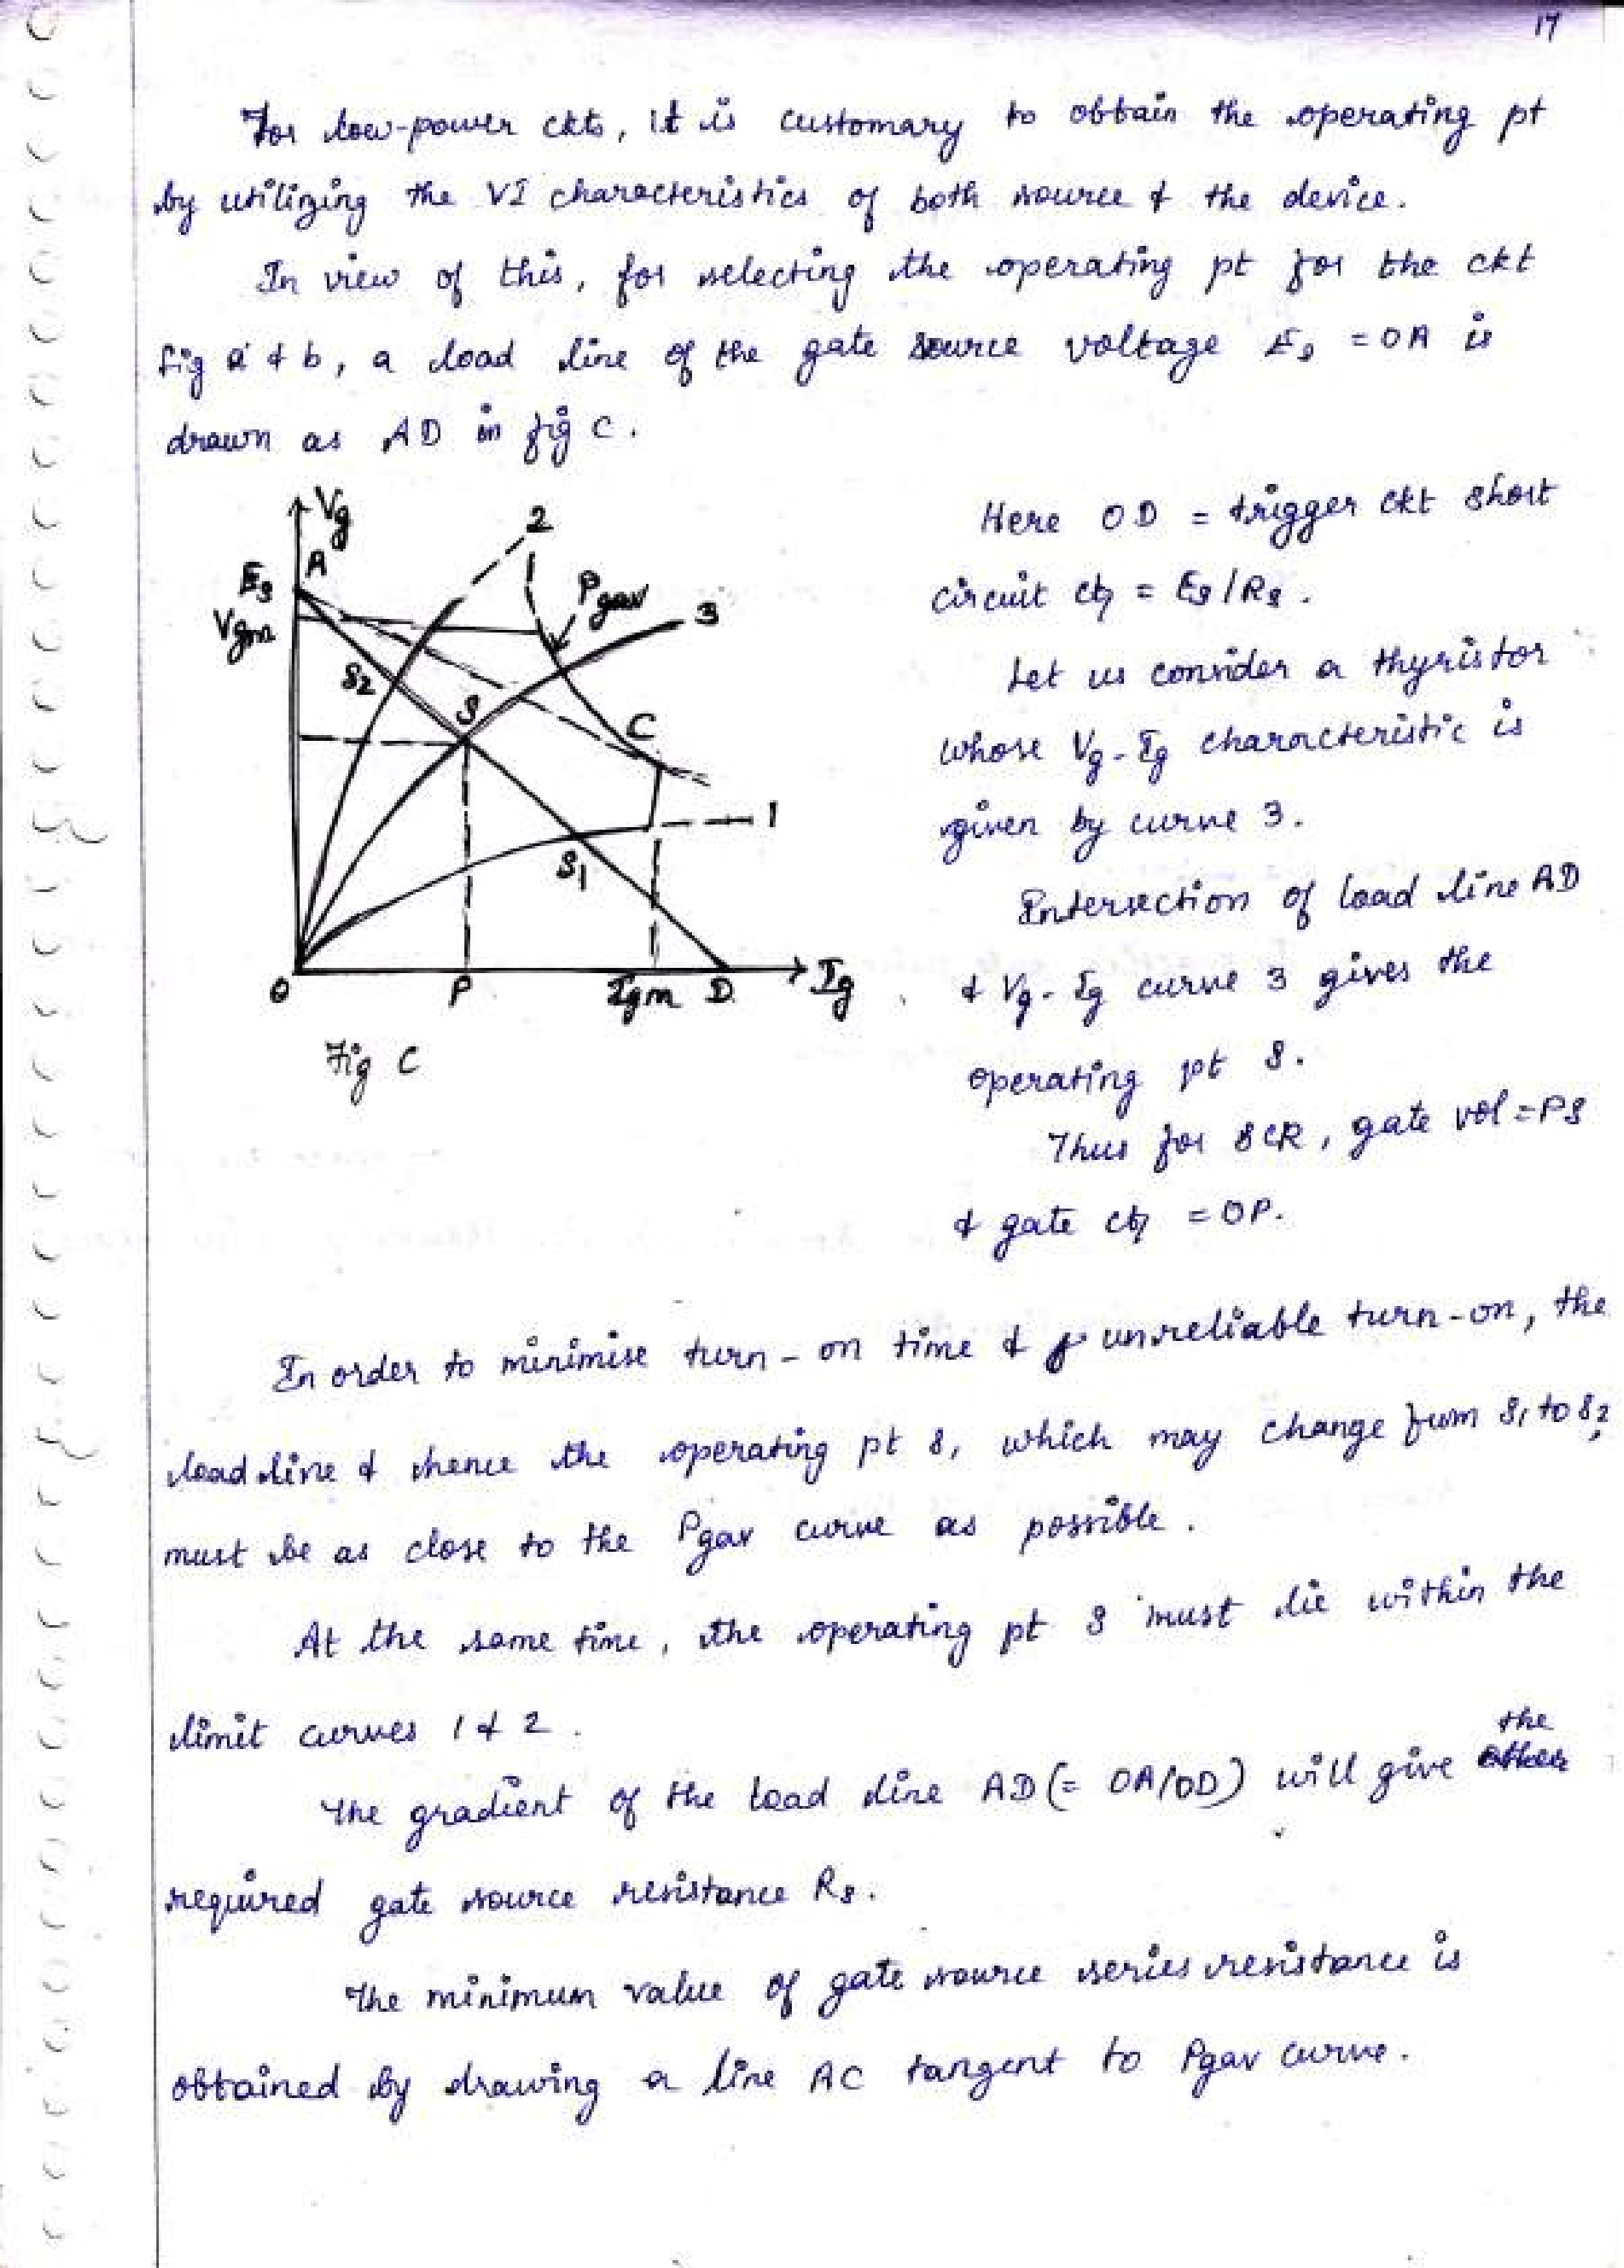 17
For low-power ckts, it is customary to obtain the operating pt
by utilizing the VI characteristics of both source & the device.
In view of this, for selecting the operating pt for the ckt
fig a & b, a load line of the gate source voltage Es = OA is
drawn as AD in fig C.
Vg
2
A
Es
Pgav
3
Vgm
S2
S
C
1
S1
O
P
Igm
D
Ig
Fig C
Here OD = trigger ckt short
circuit = Es/Rs.
Let us consider a thyristor
whose Vg-Ig characteristic is
given by curve 3.
Intersection of load line AD
& Vg-Ig curve 3 gives the
operating pt S.
Thus for SCR, gate vol = PS
& gate = OP.
In order to minimise turn-on time & unreliable turn-on, the
load line & hence the operating pt S, which may change from S1 to S2,
must be as close to the Pgav curve as possible.
At the same time, the operating pt S must lie within the
limit curves 1 & 2.
the
The gradient of the load line AD (= OA/OD) will give
required gate source resistance Rs.
The minimum value of gate source series resistance is
obtained by drawing a line AC tangent to Pgav curve.